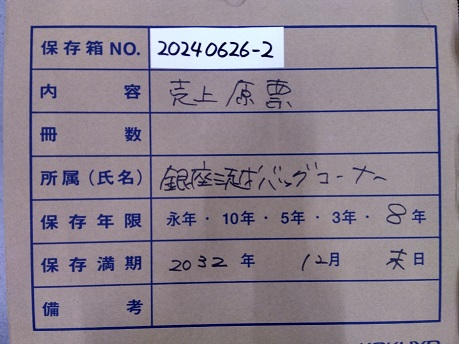 保存箱NO. 20240626-2
内容 売上原票
冊数
所属(氏名) 銀座三越バッグコーナー
保存年限 永年・10年・5年・3年・8年
保存満期 2032年 12月 末日
備考